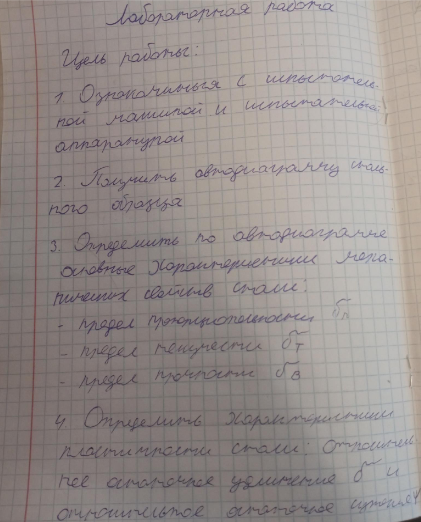 Лабораторная работа
Цель работы:
1. Ознакомиться с испытатель-
ной машиной и испытательной
аппаратурой
2. Получить автодиаграмму сталь-
ного образца
3. Определить по автодиаграмме
основные характеристики меха-
нических свойств стали:
- предел пропорциональности σп
- предел текучести σт
- предел прочности σв
4. Определить характеристики
пластичности стали: относитель-
ное остаточное удлинение δ и
относительное остаточное сужение